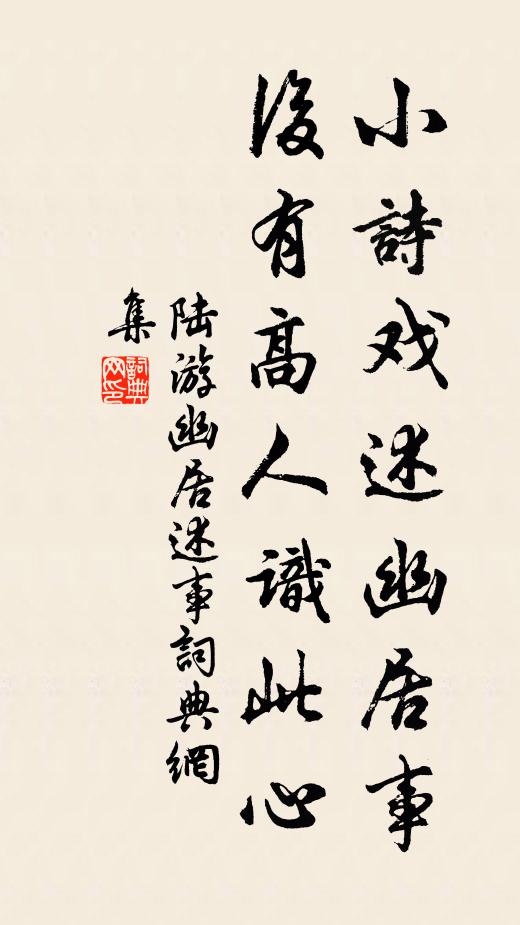 小詩戏述幽居事
後有高人識此心
陆游幽居述事詞典網
集
詞典
网印